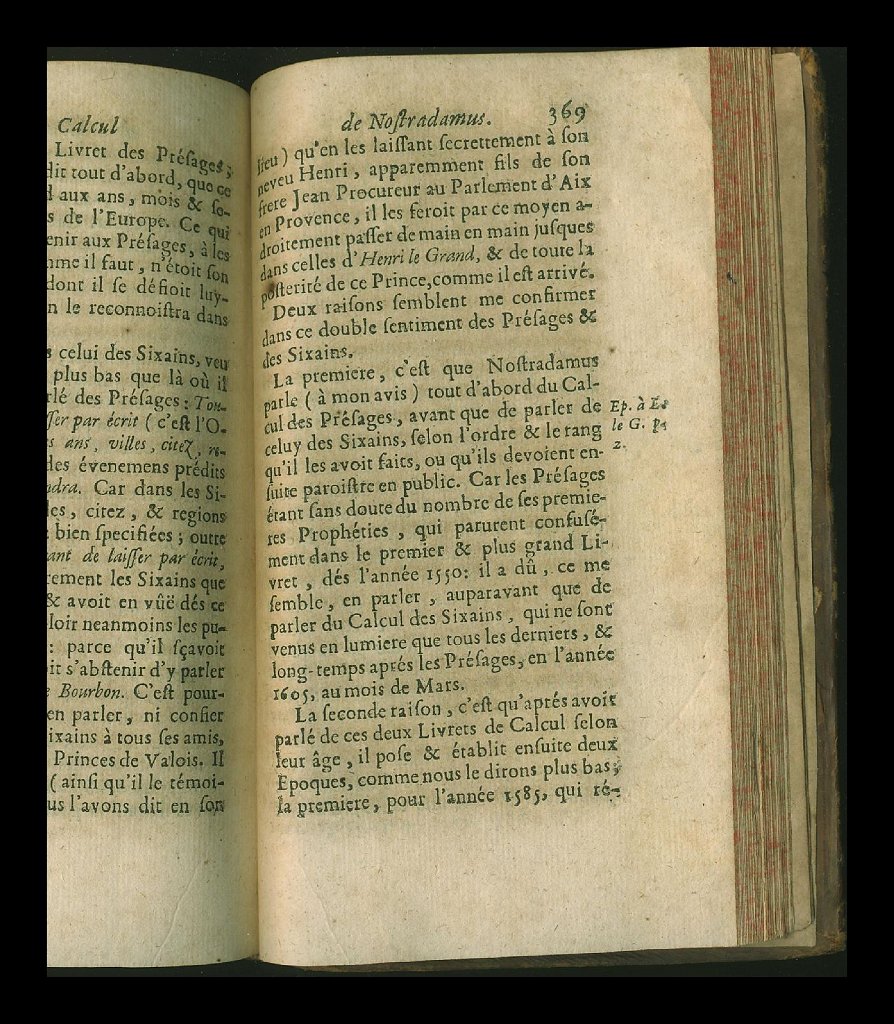 Calcul
Livret des Préſages;
dit tout d'abord, que ce
aux ans, mois & ſo-
s de l'Europe. Ce qui
enir aux Préſages, à les
me il faut, n'étoit ſon
dont il ſe défioit luy-
n le reconnoiſtra dans
celui des Sixains, veu
plus bas que là où il
rlé des Préſages: Tou-
ſſer par écrit (c'eſt l'O-
s ans, villes, citez, re-
des évenemens prédits
ndra. Car dans les Si-
es, citez, & regions
bien ſpecifiées; outre
ant de laiſſer par écrit,
rement les Sixains que
& avoit en vûë dés ce
loir neanmoins les pu-
: parce qu'il ſçavoit
it s'abſtenir d'y parler
e Bourbon. C'eſt pour-
en parler, ni confier
ixains à tous ſes amis,
Princes de Valois. Il
(ainſi qu'il le témoi-
us l'avons dit en ſon
de Noſtradamus. 369
lieu) qu'en les laiſſant ſecrettement à ſon
neveu Henri, apparemment fils de ſon
frere Jean Procureur au Parlement d'Aix
en Provence, il les feroit par ce moyen a-
droitement paſſer de main en main juſques
dans celles d'Henri le Grand, & de toute la
poſterité de ce Prince, comme il eſt arrivé.
Deux raiſons ſemblent me confirmer
dans ce double ſentiment des Préſages &
des Sixains.
La premiere, c'eſt que Noſtradamus
parle (à mon avis) tout d'abord du Cal-
cul des Préſages, avant que de parler de
celuy des Sixains, ſelon l'ordre & le rang
qu'il les avoit faits, ou qu'ils devoient en-
ſuite paroiſtre en public. Car les Préſages
étant ſans doute du nombre de ſes premie-
res Prophéties, qui parurent confuſé-
ment dans le premier & plus grand Li-
vret, dés l'année 1550: il a dû, ce me
ſemble, en parler, auparavant que de
parler du Calcul des Sixains, qui ne ſont
venus en lumiere que tous les derniers, &
long-temps aprés les Préſages, en l'année
1605, au mois de Mars.
La ſeconde raiſon, c'eſt qu'aprés avoir
parlé de ces deux Livrets de Calcul ſelon
leur âge, il poſe & établit enſuite deux
Epoques, comme nous le dirons plus bas;
la premiere, pour l'année 1585, qui ré-
Ep. à
le G. p.
2.